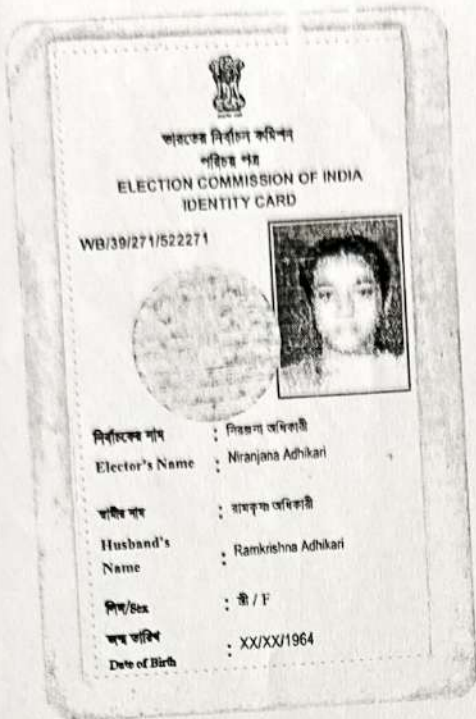 ভারতের নির্বাচন কমিশন
পরিচয় পত্র
ELECTION COMMISSION OF INDIA
IDENTITY CARD
WB/39/271/522271
নির্বাচকের নাম : নিরঞ্জনা অধিকারী
Elector's Name : Niranjana Adhikari
স্বামীর নাম : রামকৃষ্ণ অধিকারী
Husband's
Name : Ramkrishna Adhikari
লিঙ্গ/Sex : স্ত্রী / F
জন্ম তারিখ
Date of Birth : XX/XX/1964